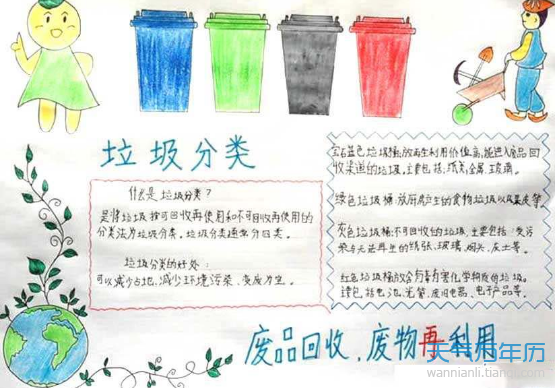 垃圾分类
什么是垃圾分类？
是将垃圾按可回收再使用和不可回收再使用的
分类法为垃圾分类。垃圾分类通常分四类。
垃圾分类的好处：
可以减少占地、减少环境污染、变废为宝。
宝石蓝色垃圾桶：放再生利用价值高，能进入废品回
收渠道的垃圾，主要包括：纸类、金属、玻璃。
绿色垃圾桶：放厨房产生的食物垃圾以及果皮等
灰色垃圾桶：不可回收的垃圾，主要包括：受污
染与无法再生的纸张、玻璃、烟头、灰土等。
红色垃圾桶放含有毒有害化学物质的垃圾。
主要包括电池、光管、废旧电器、电子产品等。
废品回收，废物再利用
天气万年历
wannianli.tianqi.com